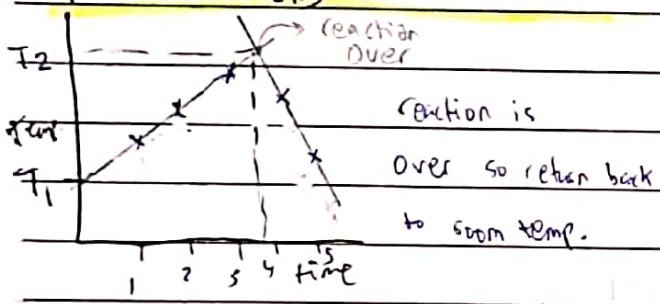 reaction
over
T2
reaction is
T1
over so return back
to room temp.
1 2 3 4 time 5